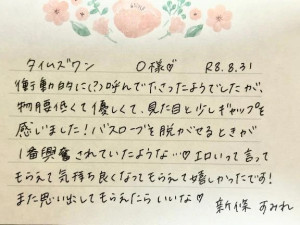 タイムズワン　O様♡　R8.8.31
衝動的に(?)呼んで下さったようでしたが、
物腰低くて優しくて、見た目と少しギャップを
感じました！バスローブを脱がせるときが
1番興奮されていたような…♡エロいって言って
もらえて気持ち良くなってもらえて嬉しかったです!
また思い出してもらえたらいいな♡
新條 すみれ